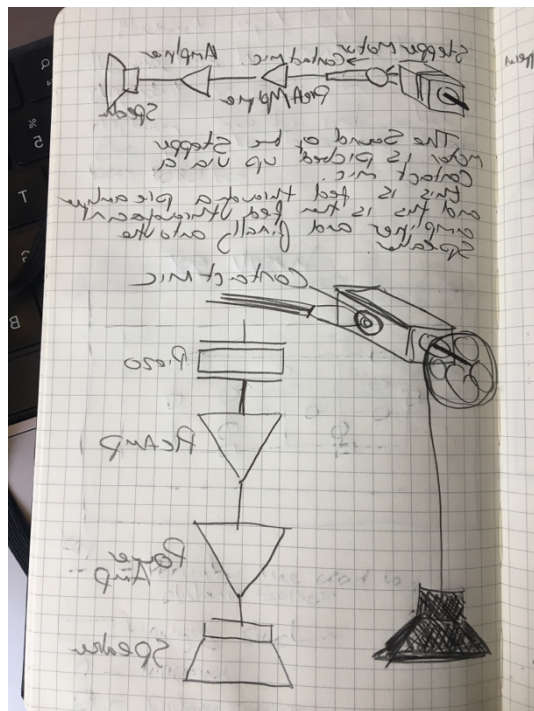 Stepper Motor
Contact mic
PreAmplifier
Amplifier
Speaker
The Sound of the Stepper
motor is picked up via a
Contact mic.
this is fed through a pre amplifier
and this is then fed through an
amplifier and finally into the
Speaker
Contact Mic
Piezo
PreAmp
Power
Amp
Speaker
%
5
T
B